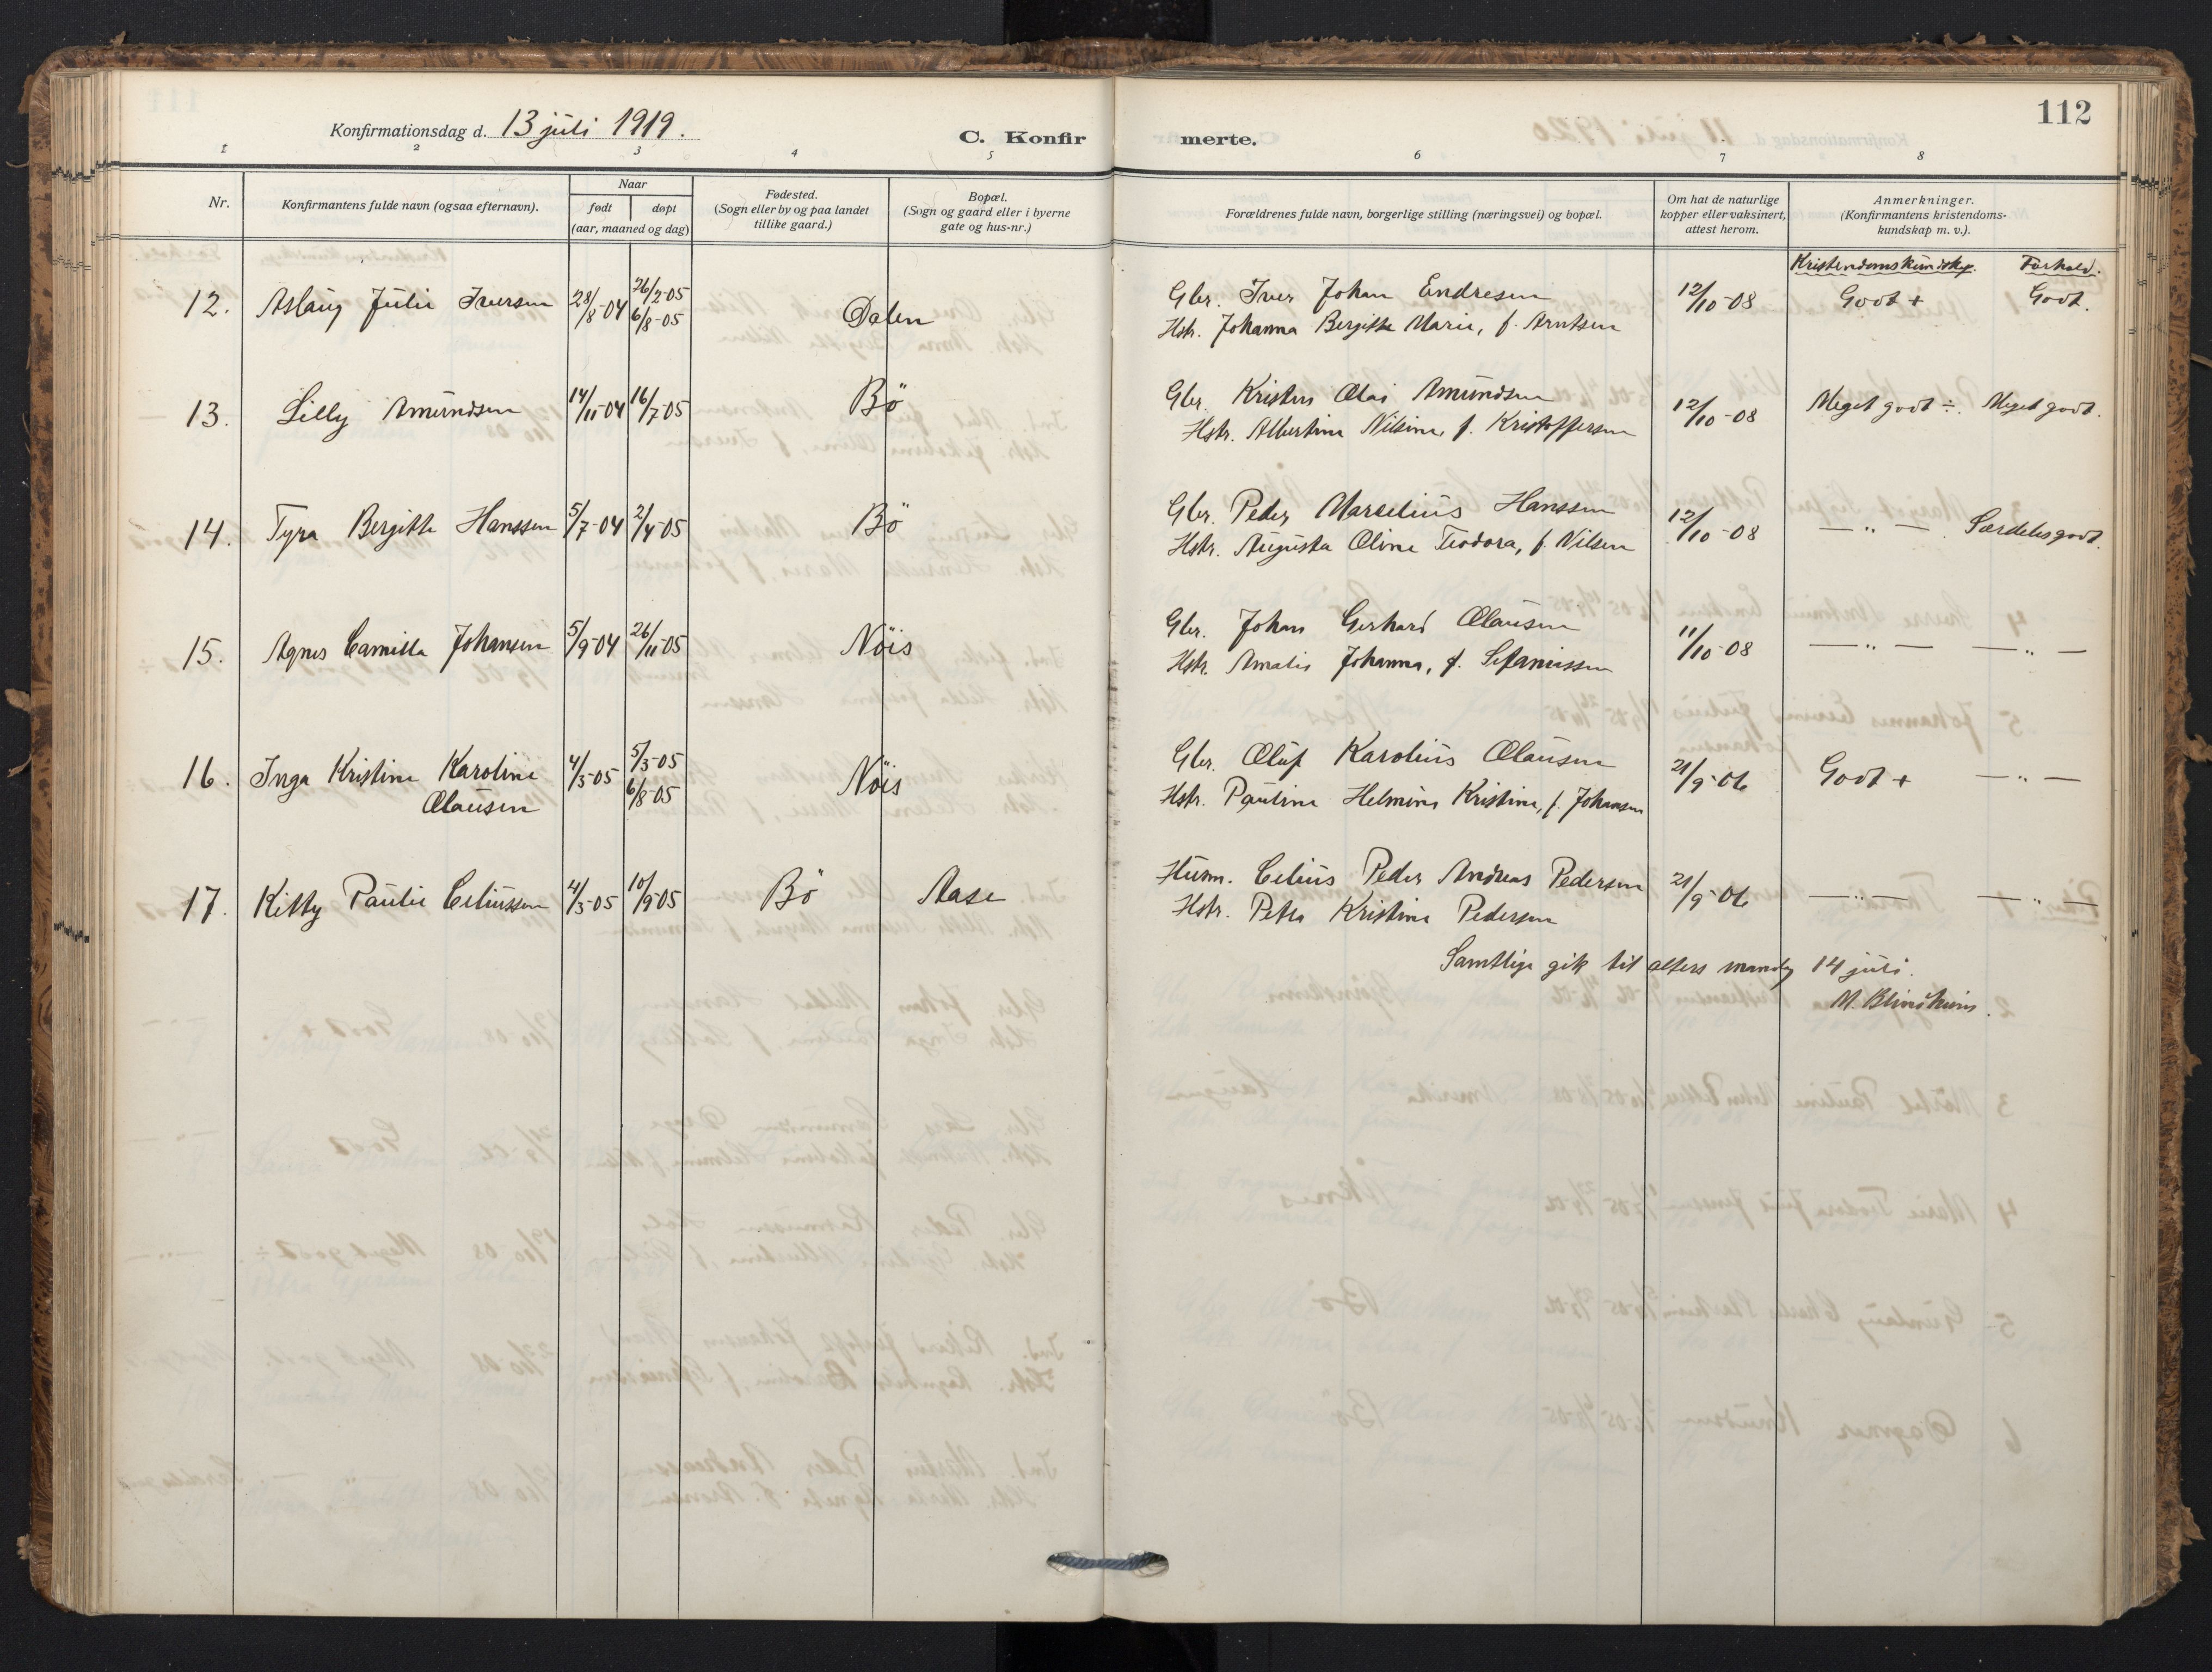 Konfirmationsdag d. 13 juli 1919.
C. Konfirmerte.
112
1 2 3 4 5 6 7 8
Nr.
Konfirmantens fulde navn (ogsaa efternavn).
Naar
født døpt
(aar, maaned og dag)
Fødested.
(Sogn eller by og paa landet
tillike gaard.)
Bopæl.
(Sogn og gaard eller i byerne
gate og hus-nr.)
Forældrenes fulde navn, borgerlige stilling (næringsvei) og bopæl.
Om hat de naturlige
kopper eller vaksinert,
attest herom.
Anmerkninger.
(Konfirmantens kristendoms-
kundskap m. v.).
Kristendomskundskp. Forhold.
12. Aslaug Julie Iversen 28/8-04 26/2-05 6/8-05 Dalen
Gbr. Iver Johan Endresen
Hstr. Johanna Bergitte Marie, f. Arntsen
12/10-08 Godt + Godt.
13. Lilly Amundsen 14/11-04 16/7-05 Bö
Gbr. Kristen Olai Amundsen
Hstr. Albertine Nilsine, f. Kristoffersen
12/10-08 Meget godt ÷. Meget godt.
14. Tyra Bergitte Hanssen 5/7-04 2/4-05 Bö
Gbr. Peder Marselius Hanssen
Hstr. Augusta Oline Teodora, f. Nilsen
12/10-08 — " — Særdeles godt.
15. Agnes Camilla Johansen 5/9-04 26/11-05 Nöis
Gbr. Johan Gerhard Olausen
Hstr. Amalie Johanna, f. Sefaniassen
11/10-08 — " — — " —
16. Inga Kristine Karoline
Olausen 4/3-05 5/3-05 6/8-05 Nöis
Gbr. Oluf Karolius Olausen
Hstr. Pauline Helmine Kristine, f. Johansen
21/9-06 Godt + — " —
17. Kitty Paulie Celiussen 4/3-05 10/9-05 Bö Aase
Husm. Celius Peder Andreas Pedersen
Hstr. Petra Kristine Pedersen
21/9-06 — " — — " —
Samtlige gik til alters mandag 14 juli.
M. Blindheim.